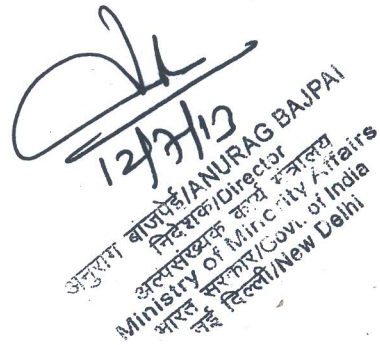 12/7/13
अनुराग बाजपेई/ANURAG BAJPAI
निदेशक/Director
अल्पसंख्यक कार्य मंत्रालय
Ministry of Minority Affairs
भारत सरकार/Govt. of India
नई दिल्ली/New Delhi